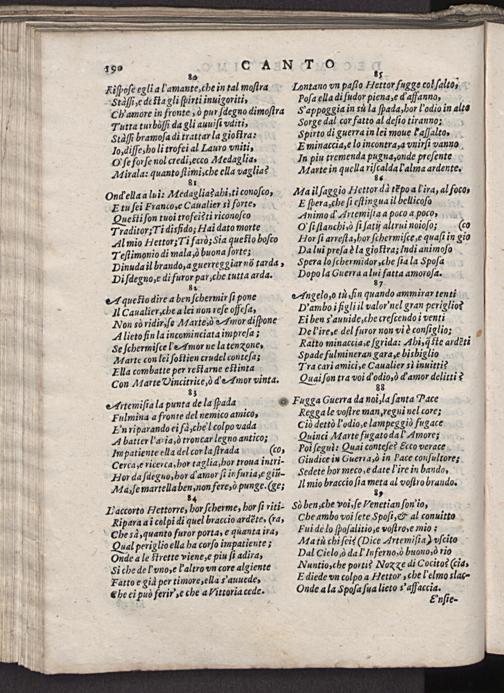 190
CANTO
80
Rispose egli a l'amante, che in tal mostra
Stàssi, e desta gli spirti inuigoriti,
Ch'amore in fronte, ò pur sdegno dimostra
Tutta turbossi da gli auuisi vditi,
Stàssi bramosa di trattar la giostra:
Io, disse, ho li trofei al Lauro vniti,
O' se forse nol credi, ecco Medaglia,
Mirala: quanto stimi, che ella vaglia?
81
Ond'ella a lui: Medaglia? ahi, ti conosco,
E tu sei Franco, e Caualier sì forte,
Questi son tuoi trofei? ti riconosco
Traditor; Ti disfido; Hai dato morte
Al mio Hettor; Ti farò; Sia questo bosco
Testimonio di mala, ò buona sorte;
Dinuda il brando, a guerreggiar nõ tarda,
Di sdegno, e di furor par, che tutta arda.
82
A questo dire a ben schermir si pone
Il Caualier, che a lei non rese offesa,
Non sò ridir, se Marte, ò Amor dispone
A lieto fin la incominciata impresa;
Se schermisce l'Amor ne la tenzone,
Marte con lei sostien crudel contesa;
Ella combatte per restarne estinta
Con Marte Vincitrice, ò d'Amor vinta.
83
Artemisia la punta de la spada
Fulmina a fronte del nemico amico,
E'n riparando ei fà, che'l colpo vada
A batter l'aria, ò troncar legno antico;
Impatiente ella del cor la strada (co,
Cerca, e ricerca, hor taglia, hor troua intri-
Hor da sdegno, hor d'amor si infuria, e giũ-
Mà, se martella ben, non fere, ò punge. (ge;
84
L'accorto Hettorre, hor scherme, hor si riti-
Ripara a i colpi di quel braccio ardẽte, (ra,
Che sà, quanto furor porta, e quanta ira,
Qual periglio ella ha corso impatiente;
Onde a le strette viene, e piu si adira,
Si che de l'vno, e l'altro vn core algiente
Fatto e già per timore, ella s'auuede,
Che ei può ferir', e che a Vittoria cede.
85
Lontano vn passo Hettor fugge col salto,
Posa ella di sudor piena, e d'affanno,
S'appoggia in sù la spada, hor l'odio in alto
Sorge dal cor fatto al desio tiranno;
Spirto di guerra in lei moue l'assalto,
E minaccia, e lo incontra, a vnirsi vanno
In piu tremenda pugna, onde presente
Marte in quella riscalda l'alma ardente.
86
Ma il saggio Hettor dà tẽpo a l'ira, al foco,
E spera, che si estingua il bellicoso
Animo d'Artemisia a poco a poco,
O' si stanchi, ò si satij altrui noioso; (co
Hor si arresta, hor schermisce, e quasi in gio
Da lui presa è la giostra; Indi animoso
Spera lo schermidor, che sia la Sposa
Dopo la Guerra a lui fatta amorosa.
87
Angelo, o tù, fin quando ammirar tenti
D'ambo i figli il valor' nel gran periglio?
Ei ben s'auuide, che crescendo i venti
De l'ire, e del furor non vi è consiglio;
Ratto minaccia, e sgrida: Ahi, q̃ste ardẽti
Spade fulmineran gara, e bisbiglio
Tra cari amici, e Caualier sì inuitti?
Quai son tra voi d'odio, ò d'amor delitti?
88
Fugga Guerra da noi, la santa Pace
Regga le vostre man, regni nel core;
Ciò dettò l'odio, e lampeggiò fugace
Quinci Marte fugato da l'Amore;
Poi seguì: Quai contese? Ecco verace
Giudice in Guerra, ò in Pace consultore;
Sedete hor meco, e date l'ire in bando,
Il mio braccio sia meta al vostro brando.
89
Sò ben, che voi, se Venetian son'io,
Che ambo voi sete Sposi, & al conuitto
Fui de lo sposalitio, e vostro, e mio:
Ma tù chi sei? (Dice Artemisia) vscito
Dal Cielo, ò da l'Inferno, ò buono, ò rio
Nuntio, che porti? Nozze di Cocito? (cia,
E diede vn colpo a Hettor, che l'elmo slac-
Onde a la Sposa sua lieto s'affaccia.
Ensie-